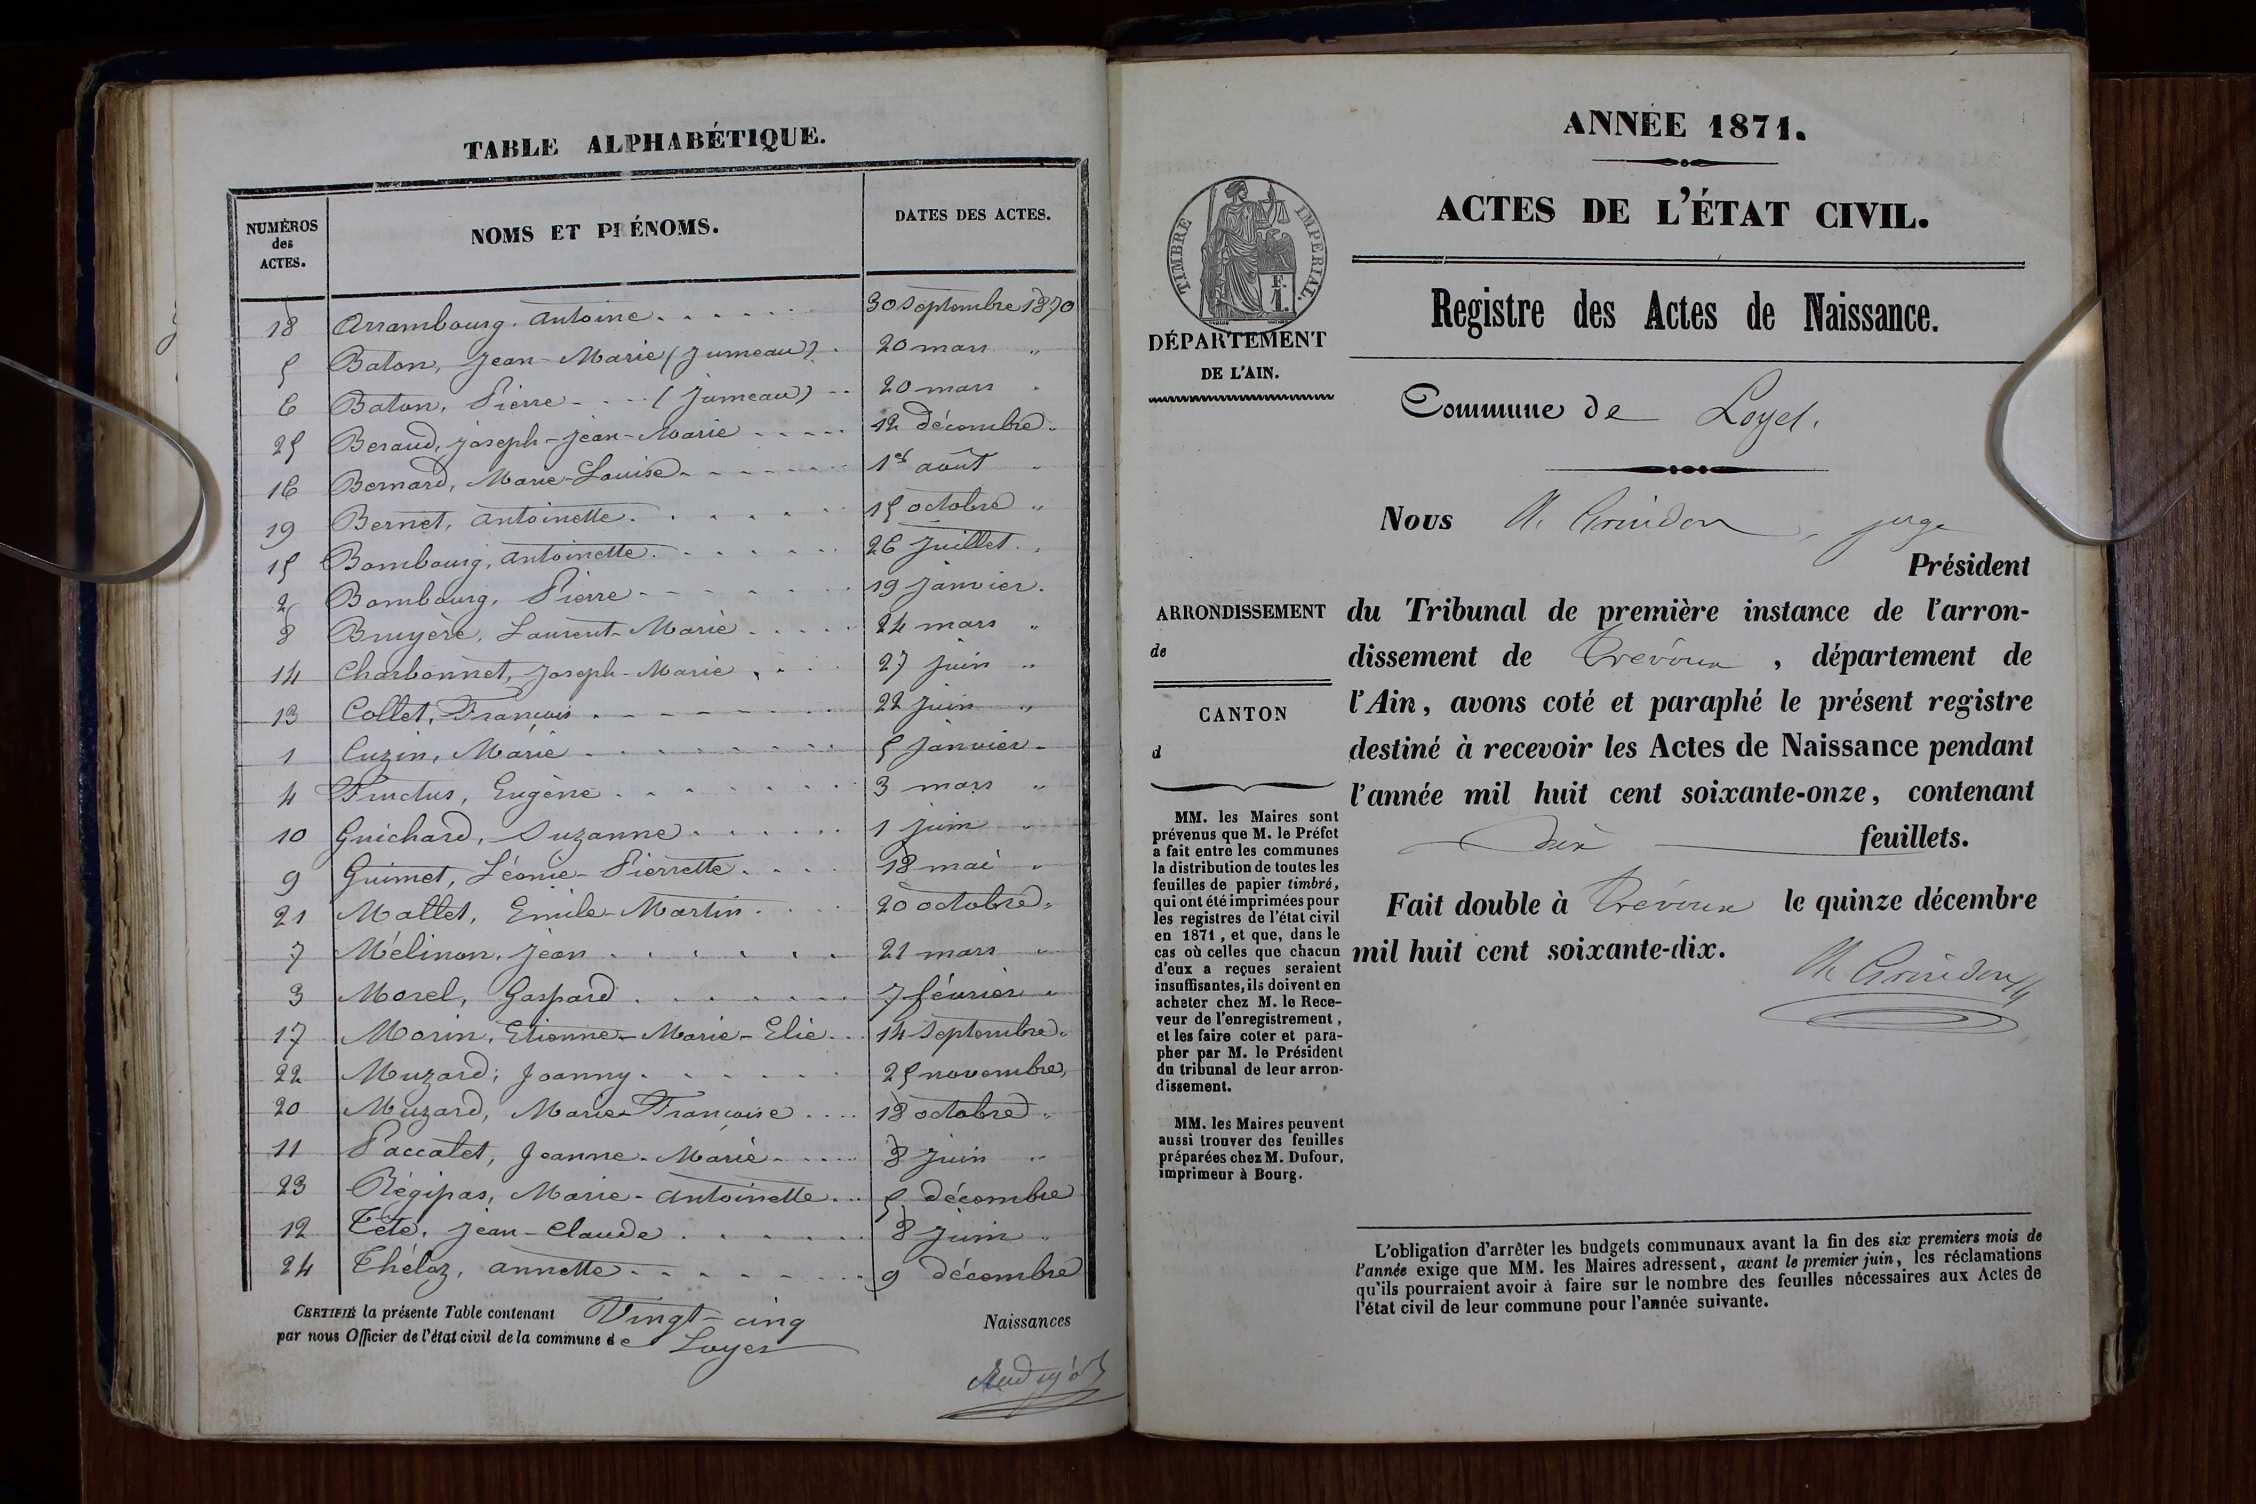 TABLE ALPHABÉTIQUE.
NUMÉROS des ACTES. NOMS ET PRÉNOMS. DATES DES ACTES.
18 Arrambourg. Antoine. 30 Septembre 1870
5 Baton, Jean-Marie (Jumeau). 20 mars "
6 Baton, Pierre (Jumeau) 20 mars "
25 Beraud, Joseph-Jean-Marie 12 décembre "
16 Bernard, Marie-Louise 1er août "
19 Bernet, Antoinette. 15 octobre "
15 Bombourg, Antoinette. 26 Juillet "
2 Bombourg, Pierre 19 Janvier.
8 Bruyère, Laurent-Marie 24 mars "
14 Charbonnet, Joseph-Marie 27 juin "
13 Collet, François 22 juin "
1 Cuzin, Marie 5 Janvier
4 Fructus, Eugène 3 mars "
10 Guichard, Suzanne 1 juin "
9 Guimet, Léonie-Pierrette. 18 mai "
21 Mallet, Emile-Martin. 20 octobre "
7 Mélinon, Jean 21 mars "
3 Morel, Gaspard 7 février "
17 Morin, Etienne-Marie-Elie 14 Septembre "
22 Muzard, Joanny 25 novembre,
20 Muzard, Marie-Françoise 18 octobre "
11 Paccalet, Jeanne-Marie 8 juin "
23 Régipas, Marie-Antoinette 5 décembre
12 Tété, Jean-Claude 8 juin "
24 Théloz, Annette 9 décembre
CERTIFIÉ la présente Table contenant Vingt-cinq Naissances
par nous Officier de l'état civil de la commune de Loyes
ANNÉE 1871.
ACTES DE L'ÉTAT CIVIL.
TIMBRE IMPERIAL.
Registre des Actes de Naissance.
DÉPARTEMENT
DE L'AIN.
Commune de Loyes.
Nous M. Grindon, juge
Président
ARRONDISSEMENT
de
CANTON
d
du Tribunal de première instance de l'arron-
dissement de Trévoux, département de
l'Ain, avons coté et paraphé le présent registre
destiné à recevoir les Actes de Naissance pendant
l'année mil huit cent soixante-onze, contenant
dix feuillets.
Fait double à Trévoux le quinze décembre
mil huit cent soixante-dix.
M. Grindon
MM. les Maires sont
prévenus que M. le Préfet
a fait entre les communes
la distribution de toutes les
feuilles de papier timbré,
qui ont été imprimées pour
les registres de l'état civil
en 1871, et que, dans le
cas où celles que chacun
d'eux a reçues seraient
insuffisantes, ils doivent en
acheter chez M. le Rece-
veur de l'enregistrement,
et les faire coter et para-
pher par M. le Président
du tribunal de leur arron-
dissement.
MM. les Maires peuvent
aussi trouver des feuilles
préparées chez M. Dufour,
imprimeur à Bourg.
L'obligation d'arrêter les budgets communaux avant la fin des six premiers mois de
l'année exige que MM. les Maires adressent, avant le premier juin, les réclamations
qu'ils pourraient avoir à faire sur le nombre des feuilles nécessaires aux Actes de
l'état civil de leur commune pour l'année suivante.